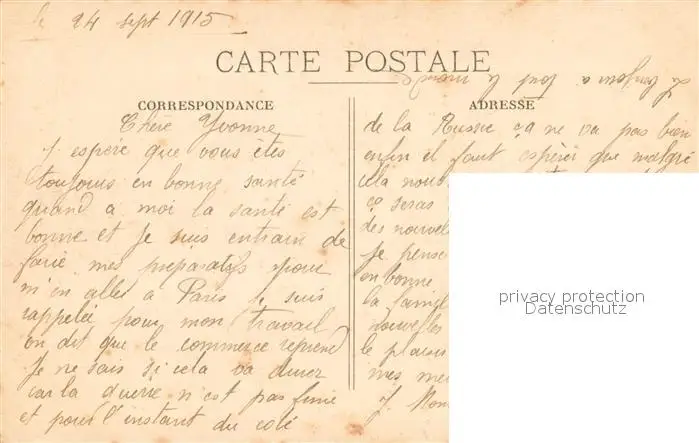 le 24 sept 1915
CARTE POSTALE
CORRESPONDANCE
Chère Yvonne
J espere que vous etes
toujours en bonne santé
quand a moi la santé est
bonne et je suis entrain de
faire mes preparatifs pour
m en aller à Paris je suis
rappelée pour mon travail
on dit que le commerce reprend
Je ne sais si cela va durer
car la guerre n est pas finie
et pour l'instant du coté
ADRESSE
de la Russie ça ne va pas bien
enfin il faut espérer que malgré
cela nous
ça seras
des nouvel
Je pense
en bonne
la famil
nouvelles
le plaisi
mes mei
J.
le bonjour a tout le monde
privacy protection
Datenschutz